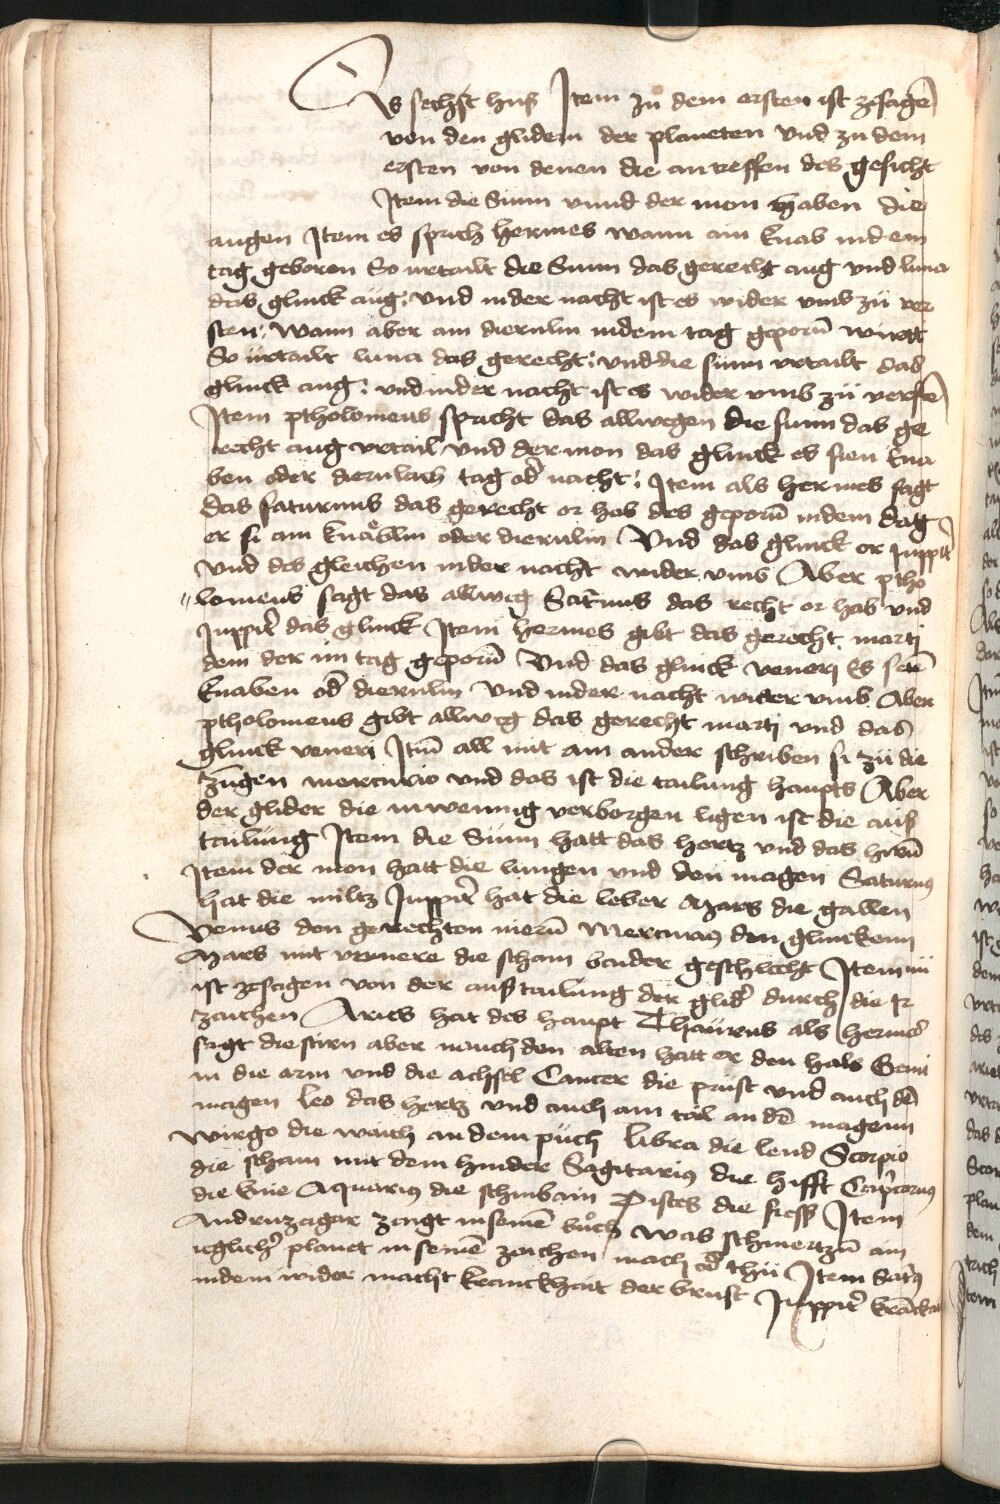 Das sechst huß Item zu dem ersten ist zesagē
von den glidern der planeten vnd zu dem
ersten von denen die antreffen des gesicht
Item die Sunn vnnd der mon haben die
augen Item es sprich hermes wann ain knab indem
tag geboren So vrtailt die Sunn das gerecht aug vnd luna
das glinck aug: vnd inder nacht ist es wider vmb zu ver
sten: wann aber ain diernlin indem tag geporn̄ wirtt
So vrtailt luna das gerecht: vnd die sunn vrtailt das
glinck aug: vnd inder nacht ist es wider vmb zü verstē
Item ptholomeus spricht das allwegen die sunn das ge
recht aug vrtail vnd der mon das glinck es sien kna
ben oder diernlach tag od̄ nacht: Item als hermes sagt
das saturnus das gerecht or hab des geporn̄ indem dag
er si ain knäblin oder diernlin Vnd das glinck or Juppit̄
vnd des gleichen inder nacht wider vmb Aber ptho
lomeus sagt das allweg Sat̄nus das recht or hab vnd
Juppit̄ das glinck Item hermes gibt das gerecht marti
dem der im tag geporn̄ Vnd das glinck veneri Es sein̄
knaben od̄ diernlin vnd inder nacht wider vmb Aber
ptholomeus gibt allweg das gerecht marti vnd das
glinck veneri Itm̄ all mit ain ander schriben si zü die
zungen mercurio vnd das ist die tailung haupts Aber
der glider die inwennig verborgen ligen ist die auß
tailung Item die Sunn hatt das hertz vnd das hirn̄
Item der mon hatt die lungen vnd den magen Saturnus
hat die miltz Juppit̄ hat die leber Mars die gallen
Venus den gerechten niern̄ Mercurius den glincken
Mars mit venere die scham baider geschlecht Item nü
ist zesagen von der außtailung der glid̄ durch die 12
zaichen Aries hat des haupt Thaurus als hermes
sagt die stirn aber nauch den alten hatt er den hals Gemi
ni die arm vnd die achsel Cancer die prust vnd auch dē
magen leo das hertz vnd auch ain tail an dē magenn
wirgo die waich an dem püch libra die lend Scorpio
die scham mit dem hinder Sagitarius die hüfft Cap̄cornus
die knie Aquarius die schinbain Pisces die fiess Item
Andruzagar zaigt in seinē buͦch was schmertzn̄ ain
ieglich̄ planet in seinē zaichen mach od̄ thü Item Sat̄us
indem wider macht kranckhait der brust Juppit̄ kranckai